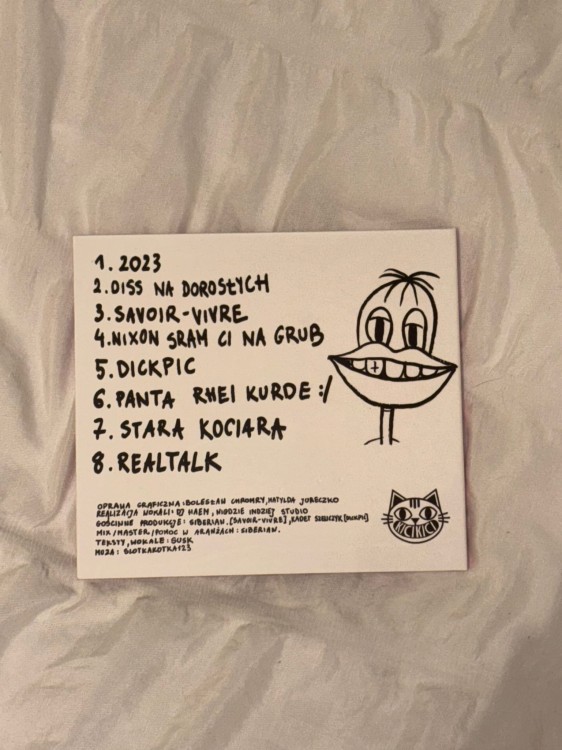 1. 2023
2. DISS NA DOROSŁYCH
3. SAVOIR-VIVRE
4. NIXON SRAM CI NA GRUB
5. DICKPIC
6. PANTA RHEI KURDE :/
7. STARA KOCIARA
8. REALTALK
OPRAWA GRAFICZNA: BOLESŁAW CHROMRY, MATYLDA JURECZKO
REALIZACJA WOKALI: DJ HAEM, NIGDZIE INDZIEJ STUDIO
GOŚCINNE PRODUKCJE: SIBERIAN. [SAVOIR-VIVRE], KADET
MIX/MASTER/POMOC W ARANŻACH: SIBERIAN.
TEKSTY, WOKALE: GUSK
MUZA: SLOTKAKOTKA123